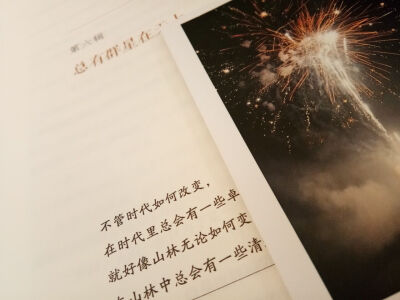 第六辑
总有群星在天上
不管时代如何改变，
在时代里总会有一些卓
就好像山林无论如何变
在山林中总会有一些清